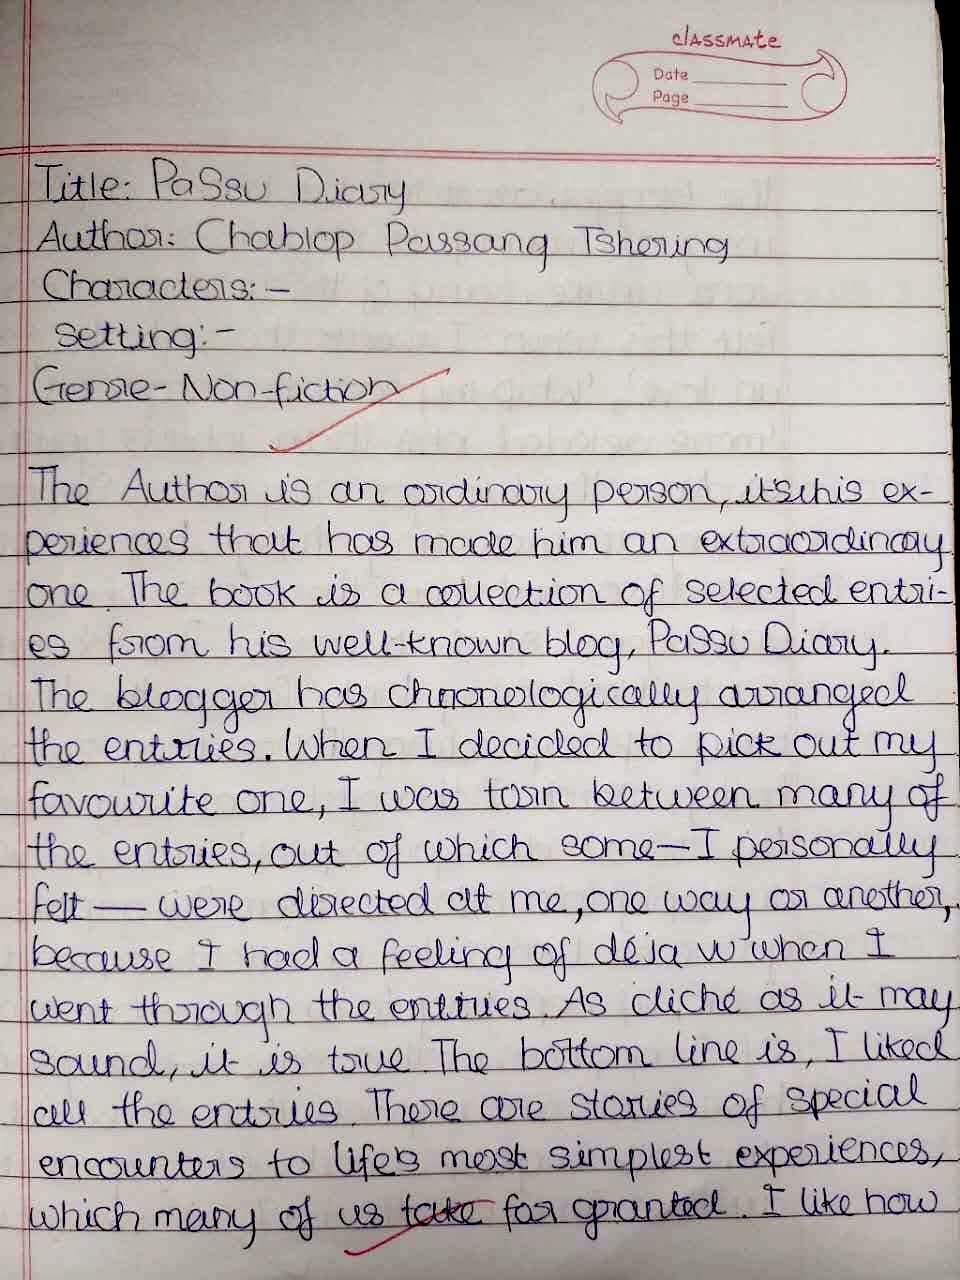 classmate
Date
Page
Title: PaSSu Diary
Author: Chablop Passang Tshering
Characters:-
Setting:-
Genre- Non-fiction
The Author is an ordinary person, its his ex-
periences that has made him an extraordinary
one. The book is a collection of selected entri-
es from his well-known blog, PaSSu Diary.
The blogger has chronologically arranged
the entries. When I decided to pick out my
favourite one, I was torn between many of
the entries, out of which some—I personally
felt — were directed at me, one way or another,
because I had a feeling of déja vu when I
went through the entries. As cliché as it may
sound, it is true. The bottom line is, I liked
all the entries. There are stories of special
encounters to life's most simplest experiences,
which many of us take for granted. I like how